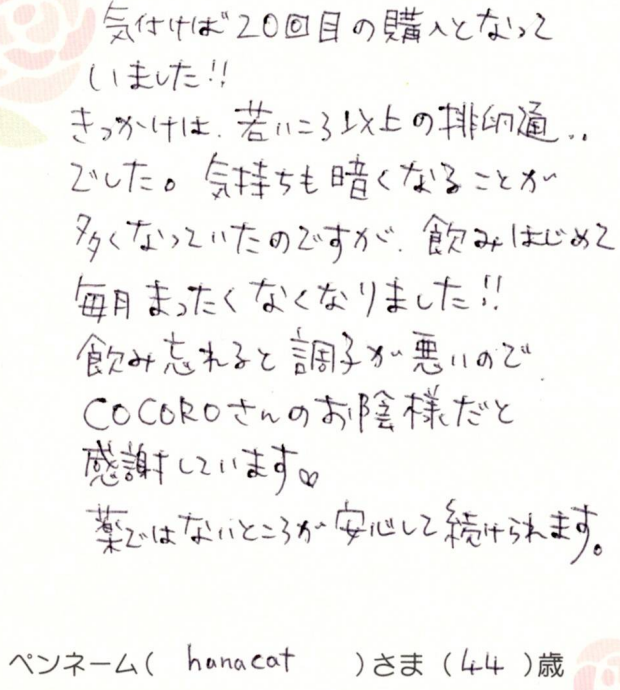 気付けば20回目の購入となって
いました!!
きっかけは、若いころ以上の排卵通..
でした。気持ちも暗くなることが
多くなっていたのですが、飲みはじめて
毎月まったくなくなりました!!
飲み忘れると調子が悪いので
COCOROさんのお陰様だと
感謝しています♡
薬ではないところが安心して続けられます。
ペンネーム( hanacat )さま (44)歳